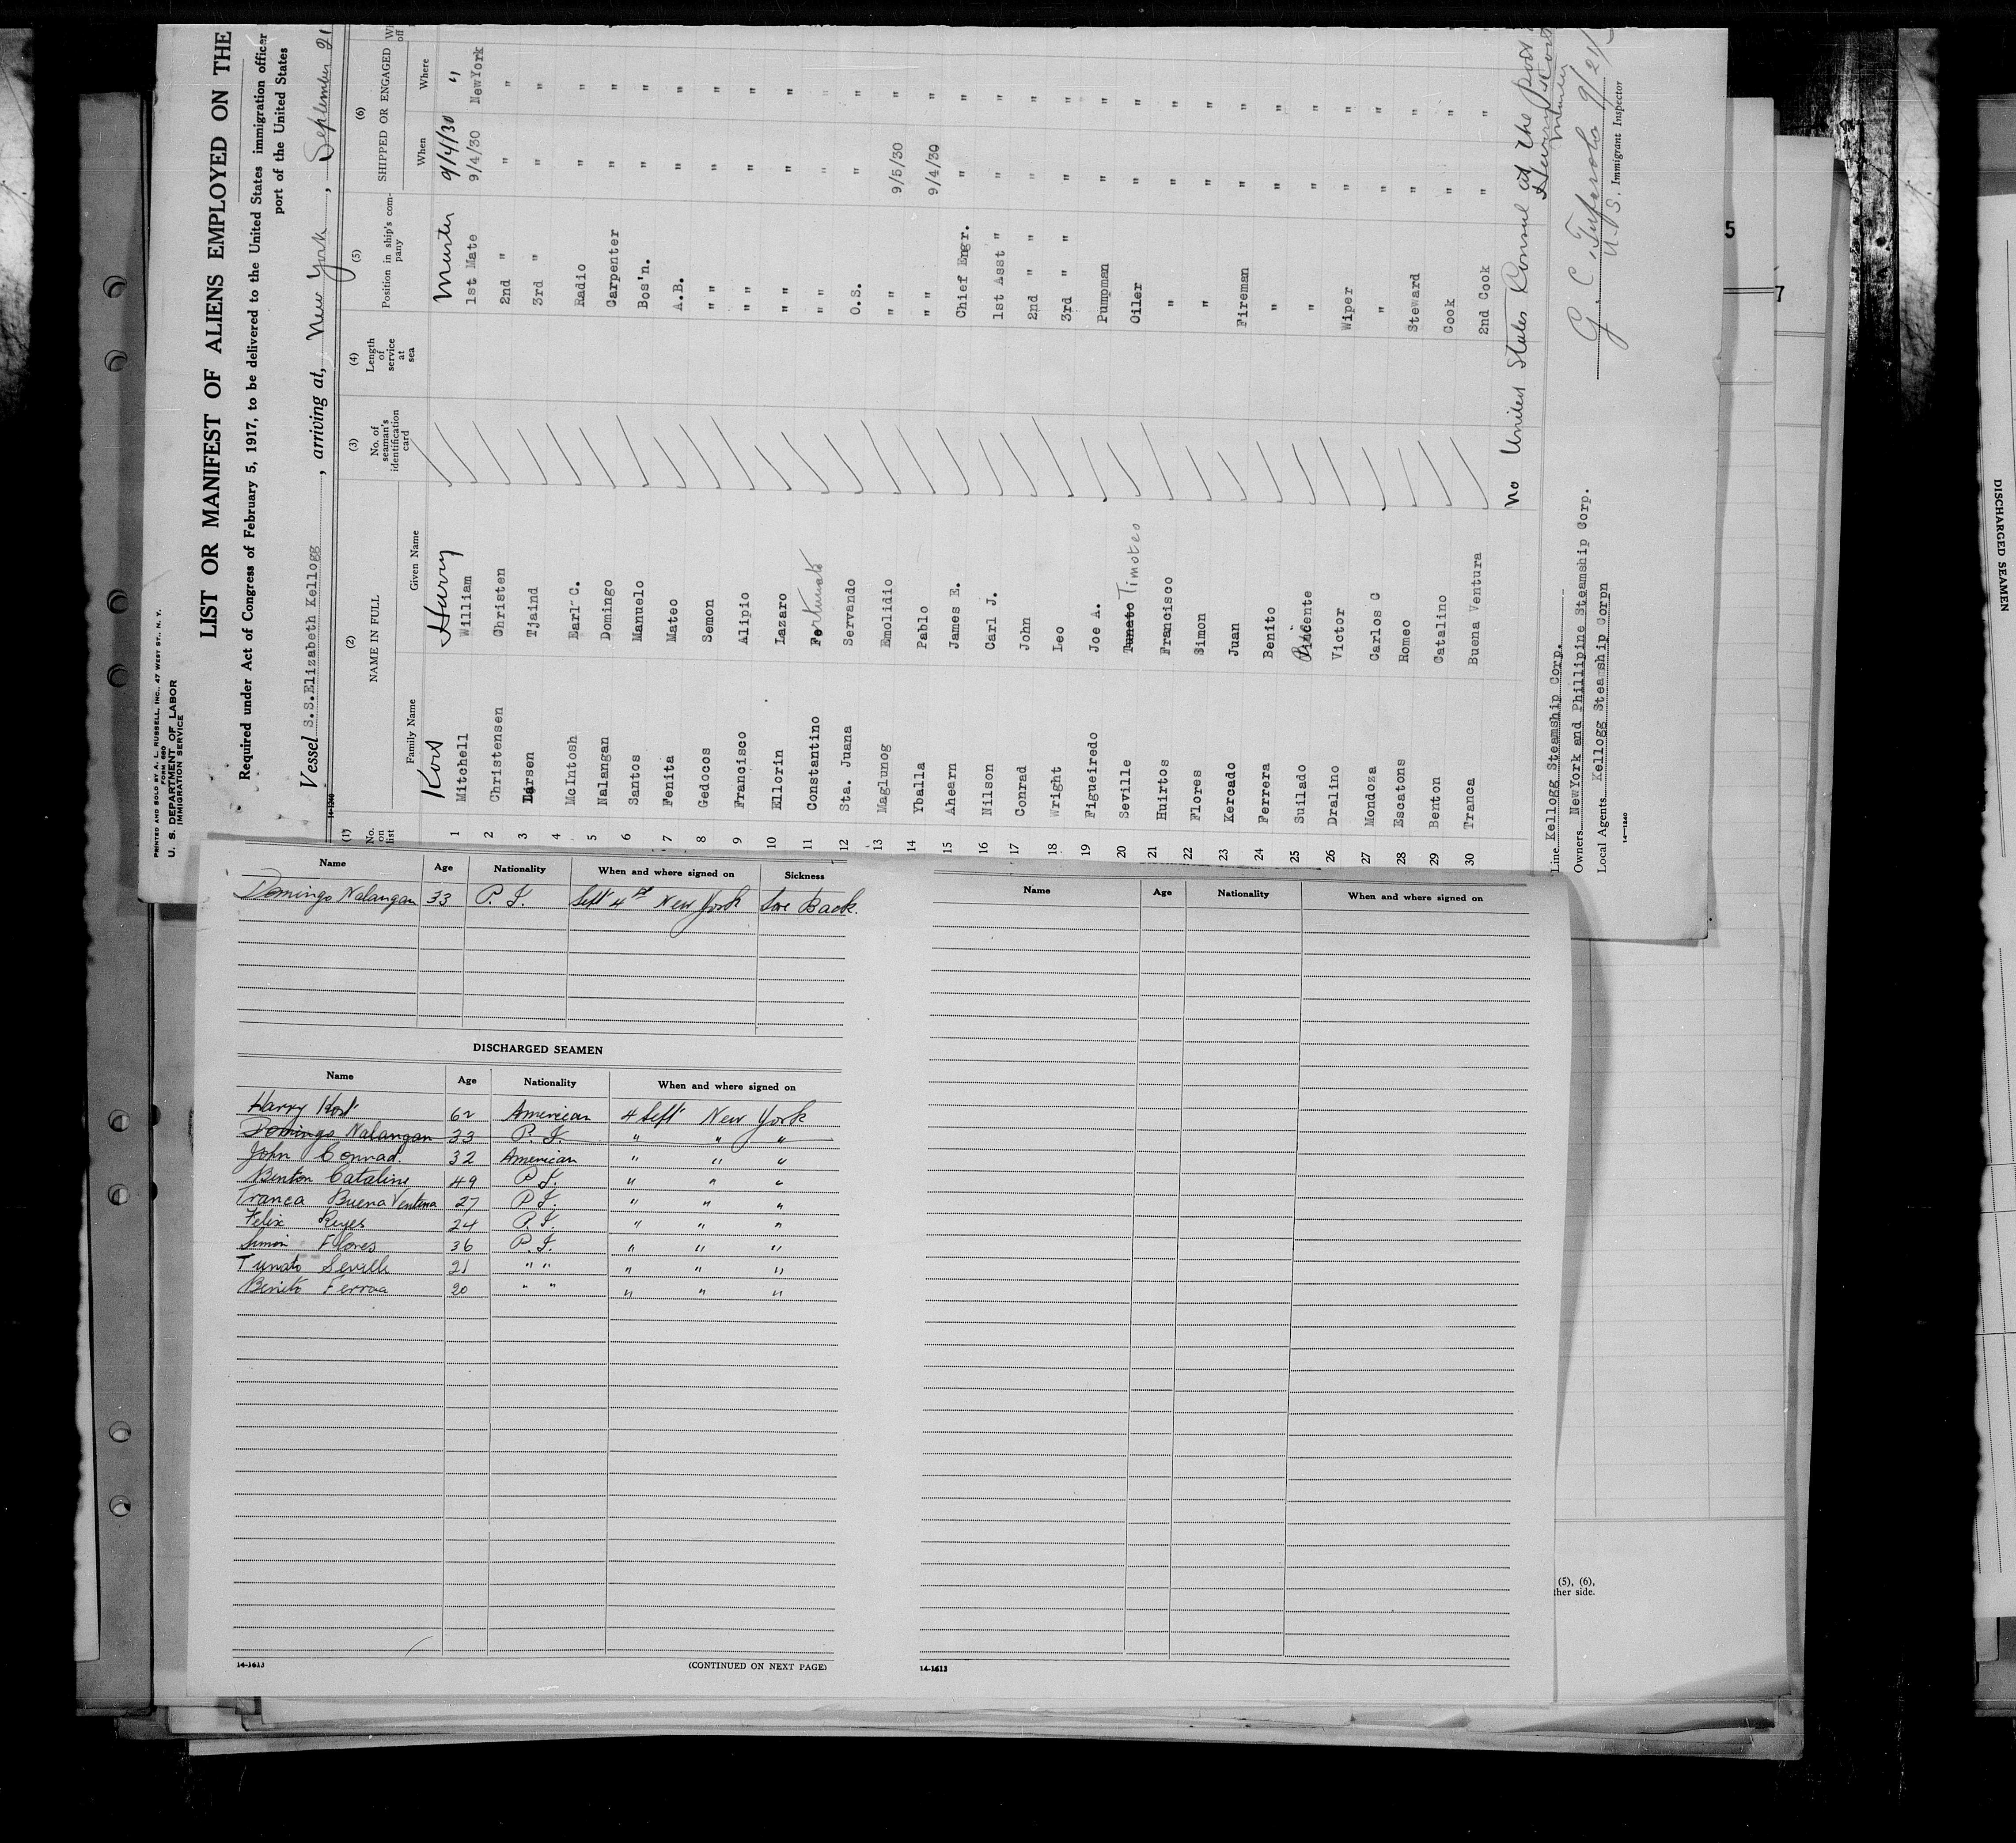 PRINTED AND SOLD BY A. L. RUSSELL, INC., 47 WEST ST., N. Y.
FORM 680
U. S. DEPARTMENT OF LABOR
IMMIGRATION SERVICE
LIST OR MANIFEST OF ALIENS EMPLOYED ON THE
Required under Act of Congress of February 5, 1917, to be delivered to the United States immigration officer
port of the United States
Vessel S.S.Elizabeth Kellogg, arriving at, New York, September 21
14-1240
(1) (2) (3) (4) (5) (6)
No. on list NAME IN FULL No. of seaman's identification card Length of service at sea Position in ship's company SHIPPED OR ENGAGED
Family Name Given Name When Where
Harry Master 9/4/30 "
1 Mitchell William 1st Mate 9/4/30 NewYork
2 Christensen Christen 2nd " " "
3 Larsen Tjaind 3rd " " "
4 McIntosh Earl C. Radio " "
5 Nalangan Domingo Carpenter " "
6 Santos Manuelo Bos'n. " "
7 Fenita Mateo A.B. " "
8 Gedocos Semon " " " "
9 Francisco Alipio " " " "
10 Ellorin Lazaro " " " "
11 Constantino Fortunato " " " "
12 Sta. Juana Servando O.S. " "
13 Maglunog Emolidio " " 9/5/30 "
14 Yballa Pablo " " 9/4/30 "
15 Ahearn James E. Chief Engr. " "
16 Nilson Carl J. 1st Asst " " "
17 Conrad John 2nd " " " "
18 Wright Leo 3rd " " " "
19 Figueiredo Joe A. Pumpman " "
20 Seville Tunato Timoteo Oiler " "
21 Huirtos Francisco " " "
22 Flores Simon " " "
23 Kercado Juan Fireman " "
24 Ferrera Benito " " "
25 Suilado Vicente " " "
26 Dralino Victor Wiper " "
27 Mondoza Carlos C " " "
28 Escatons Romeo Steward " "
29 Benton Catalino Cook " "
30 Tranca Buena Ventura 2nd Cook " "
No United States Consul at the port
Master
Line Kellogg Steamship Corp.
Owners NewYork and Phillipine Steamship Corp.
Local Agents Kellogg Steamship Corpn
U. S. Immigrant Inspector
14-1240
Name Age Nationality When and where signed on Sickness
Domingo Nalangan 33 P. I. Sept 4th New York Sore Back.
DISCHARGED SEAMEN
Name Age Nationality When and where signed on
Harry 62 American 4 Sept New York
Domingo Nalangan 33 P. I. " " "
John Conrad. 32 American " " "
Benton Cataline 49 P I. " " "
Tranca Buena Ventura 27 P I. " " "
Felix Reyes 24 P. I. " " "
Simon Flores 36 P. I. " " "
Tunato Seville 21 " " " " "
Benito Ferraa 20 " " " " "
14-1613
(CONTINUED ON NEXT PAGE)
Name Age Nationality When and where signed on
14-1613
5
7
(5), (6),
ther side.
DISCHARGED SEAMEN